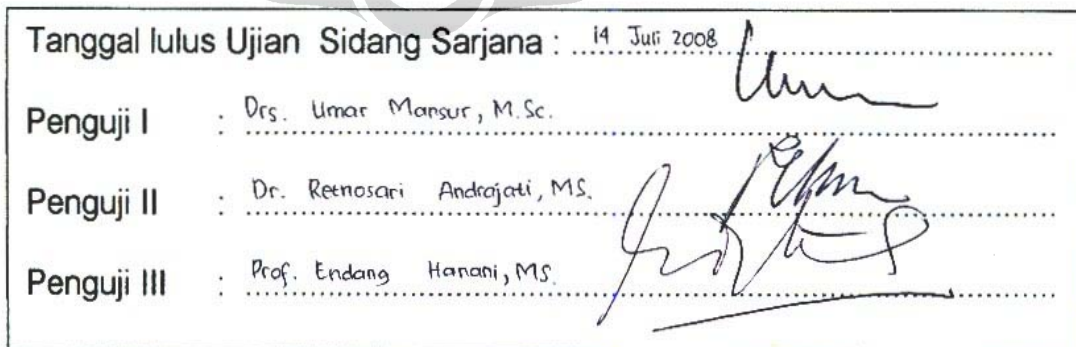 Tanggal lulus Ujian Sidang Sarjana : 14 Juli 2008
Penguji I : Drs. Umar Mansur, M.Sc.
Penguji II : Dr. Retnosari Andrajati, MS.
Penguji III : Prof. Endang Hanani, MS.